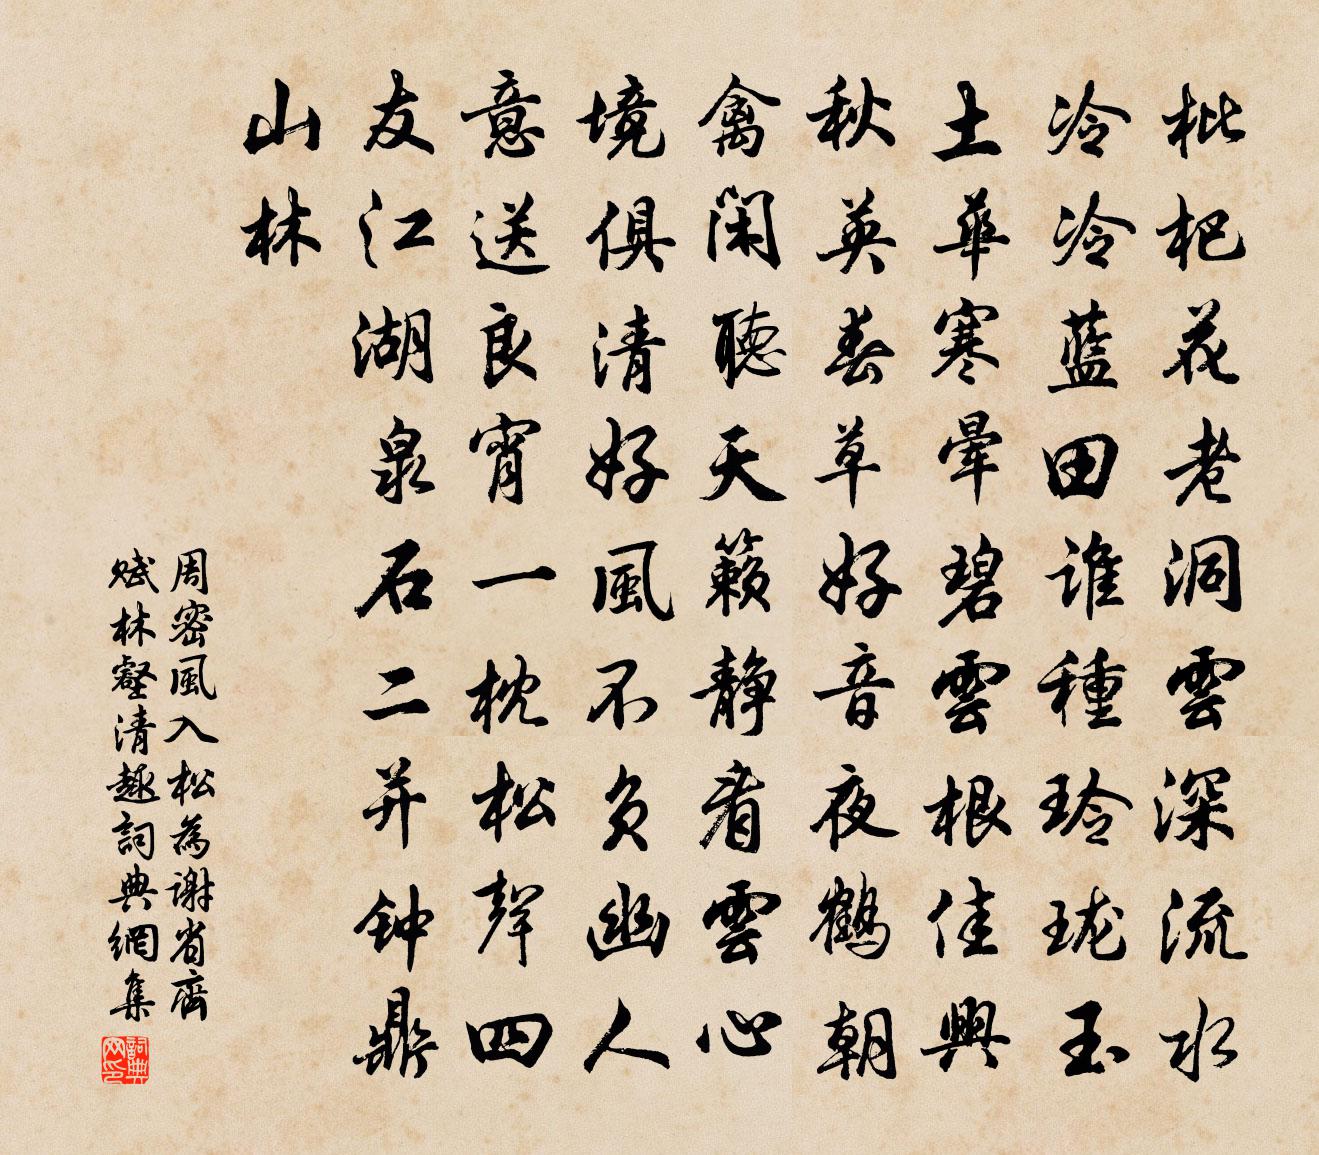 枇杷花老洞雲深流水
冷冷藍田誰種玲瓏玉
土華寒暈碧雲根佳興
秋英春草好音夜鶴朝
禽閑聽天籟靜看雲心
境俱清好風不負幽人
意送良宵一枕松聲四
友江湖泉石二并钟鼎
山林
周密風入松為謝省齋
賦林壑清趣詞典網集
詞典网印